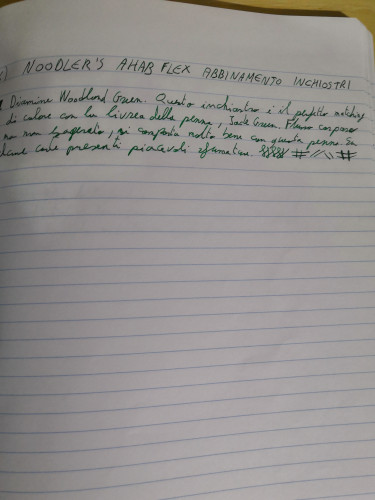 ) NOODLER'S AHAB FLEX ABBINAMENTO INCHIOSTRI
Diamine Woodland Green. Questo inchiostro è il perfetto matching
di colore con la livrea della penna, Jade Green. Flusso corposo
ma non esagerato, si comporta molto bene con questa penna. Su
carte presenti piacevoli sfumature. # //\\ #